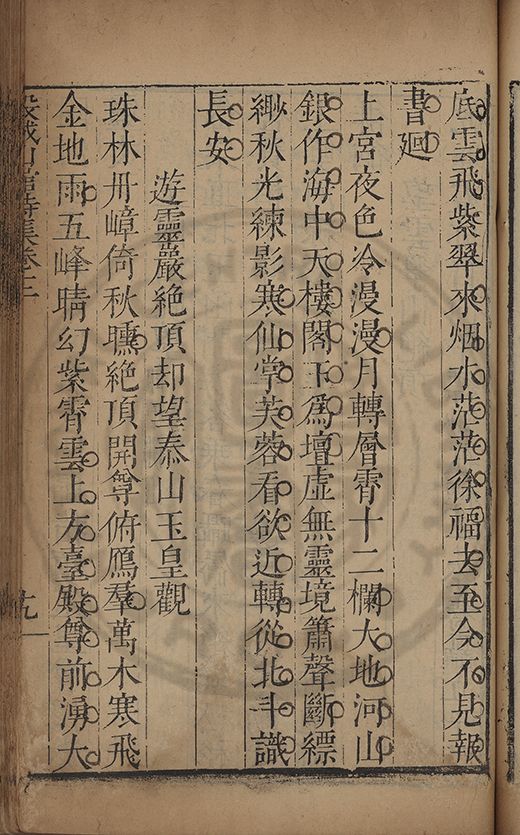 底雲飛紫翠來烟水茫茫徐福去至今不見報
書廻
上宮夜色冷漫漫月轉層霄十二欄大地河山
銀作海中天樓閣玉為壇虛無靈境簫聲斷縹
緲秋光練影寒仙掌芙蓉看欲近轉從北斗識
長安
遊靈巖絶頂却望泰山玉皇觀
珠林丹嶂倚秋曛絶頂開尊俯鴈羣萬木寒飛
金地雨五峰晴幻紫霄雲上方臺殿尊前湧大
山詩集卷二
十九